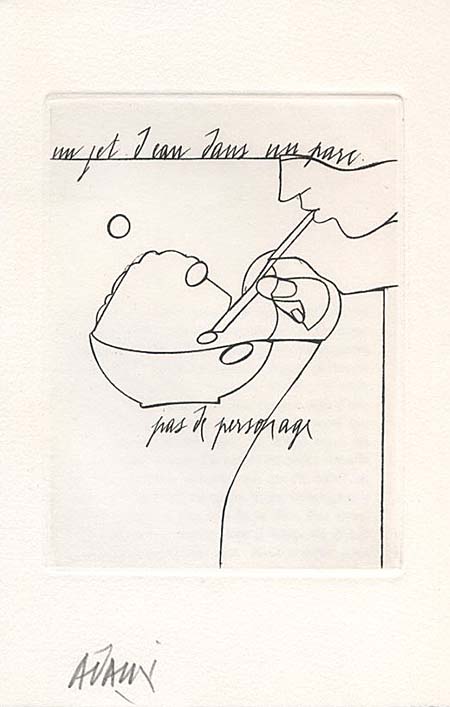 un jet d'eau dans un parc.
pas de personage
ADAMI